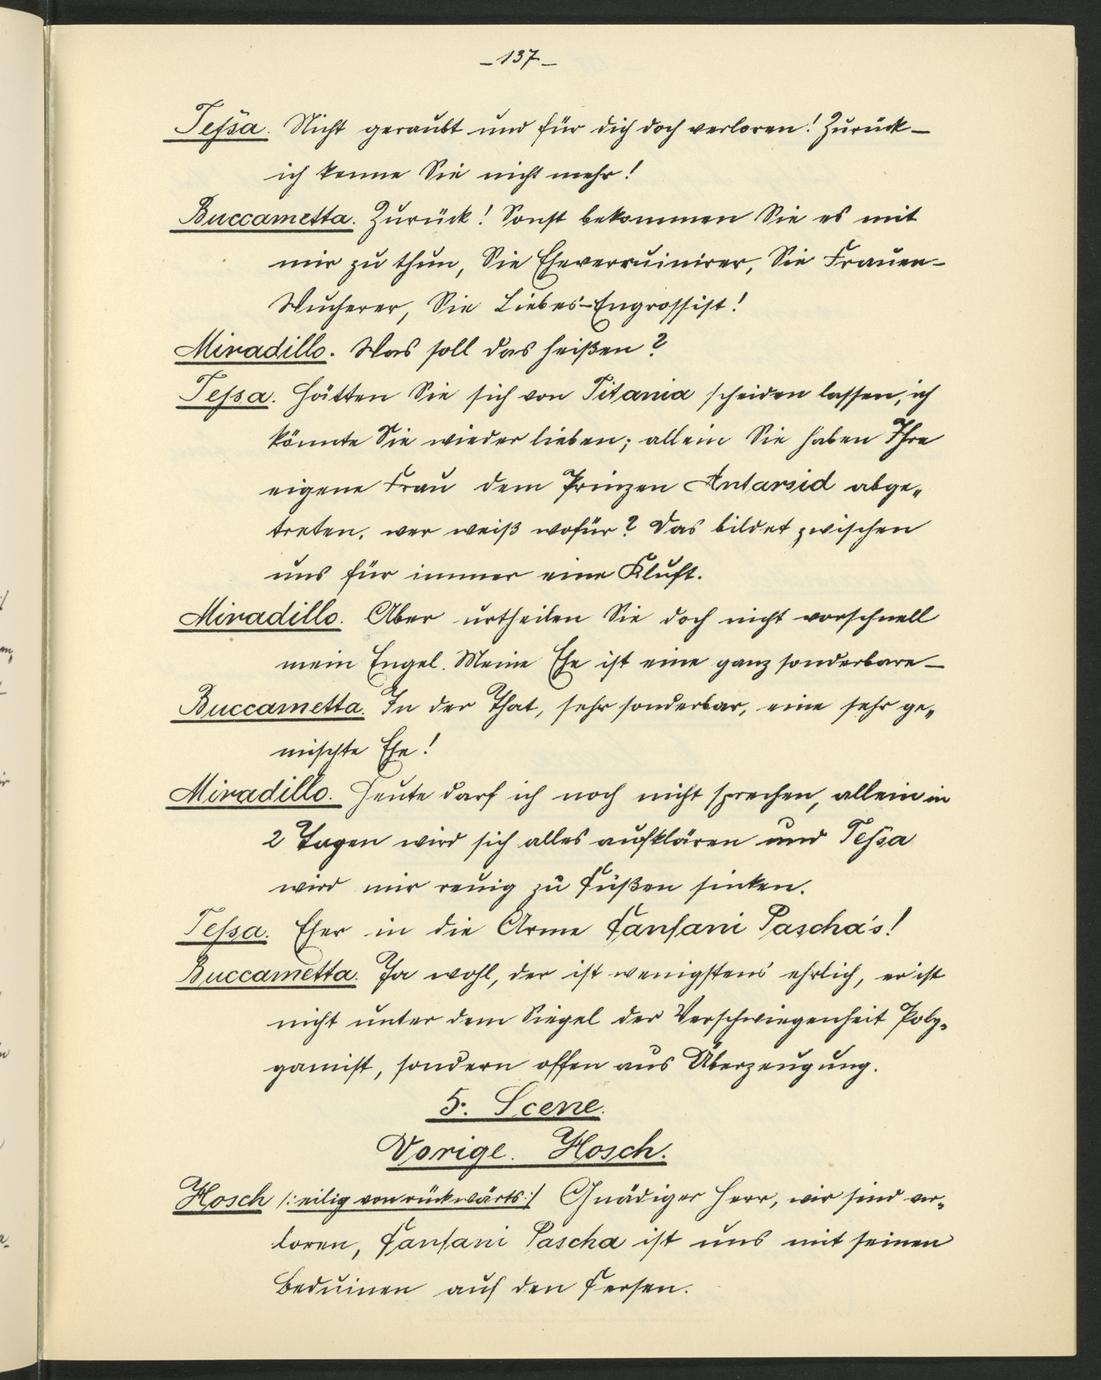 –137–
Tessa. Nicht geraubt und für dich doch verloren! Zurück –
ich kenne Sie nicht mehr!
Buccametta. Zurück! Sonst bekommen Sie es mit
mir zu thun, Sie Eheverruinirer, Sie Frauen-
Wucherer, Sie Liebes-Engrossist!
Miradillo. Was soll das heißen?
Tessa. Hätten Sie sich von Titania scheiden lassen, ich
könnte Sie wieder lieben; allein Sie haben Ihre
eigene Frau dem Prinzen Antarsid abge-
treten, wer weiß wofür? Das bildet zwischen
uns für immer eine Kluft.
Miradillo. Aber urtheilen Sie doch nicht vorschnell
mein Engel. Meine Ehe ist eine ganz sonderbare –
Buccametta. In der That, sehr sonderbar, eine sehr ge-
mischte Ehe!
Miradillo. Heute darf ich noch nicht sprechen, allein in
2 Tagen wird sich alles aufklären und Tessa
wird mir reuig zu Füßen sinken.
Tessa. Eher in die Arme Fanfani Pascha's!
Buccametta. Ja wohl, der ist wenigstens ehrlich, er ist
nicht unter dem Siegel der Verschwiegenheit Poly-
gamist, sondern offen aus Überzeugung.
5. Scene.
Vorige. Hosch.
Hosch /: eilig von rückwärts :/ Gnädiger Herr, wir sind ver-
loren, Fanfani Pascha ist uns mit seinen
Beduinen auf den Fersen.